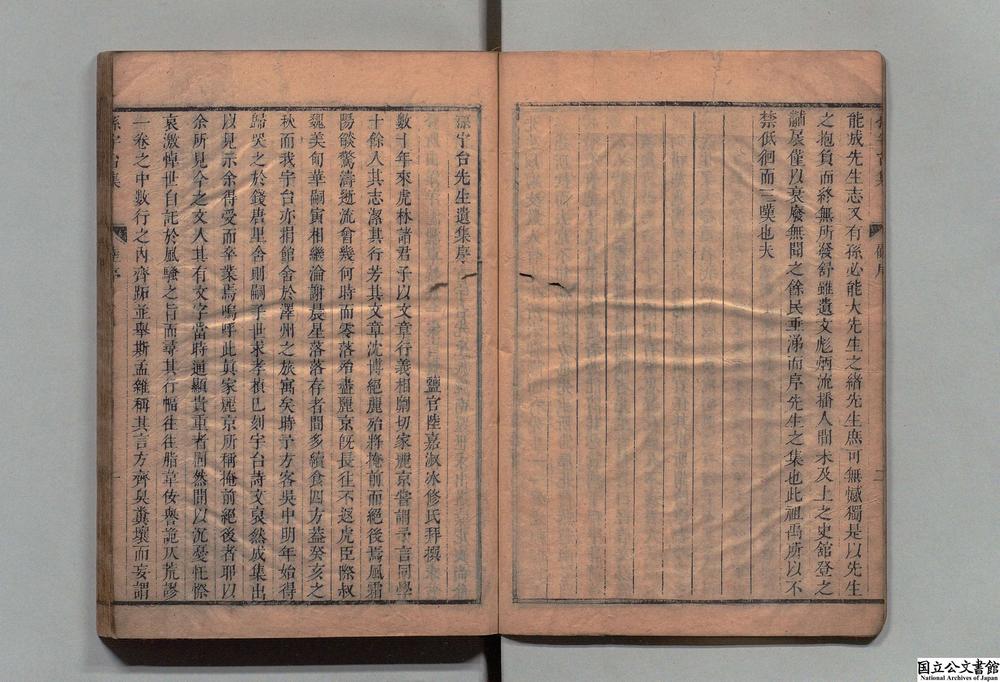 能成先生志又有孫必能大先生之緒先生庶可無憾獨是以先生
之抱負而終無所發舒雖遺文彪炳流播人間未及上之史館登之
黼扆僅以衰廢無聞之餘民垂涕而序先生之集也此祖禹所以不
禁低徊而三嘆也夫
孫宇台先生遺集序
鹽官陸嘉淑冰修氏拜撰
數十年來虎林諸君子以文章行義相劘切家麗京嘗謂予言同學
十餘人其志潔其行芳其文章沈博絕麗殆將掩前而絕後焉風霜
陽燄驚濤逝流曾幾何時而零落殆盡麗京旣長往不返虎臣際叔
魏美甸華嗣寅相繼淪謝晨星落落存者間多續食四方蓋癸亥之
秋而我宇台亦捐館舍於澤州之旅寓矣時予方客吳中明年始得
歸哭之於錢唐里舍則嗣子世求孝楨已刻宇台詩文裒然成集出
以見示余得受而卒業焉嗚呼此眞家麗京所稱掩前絕後者耶以
余所見今之文人其有文字當時通顯貴重者固然間以沉憂忹傺
哀激悼世自託於風騷之旨而尋其行幅往往脂韋侫譽詭仄荒謬
一卷之中數行之內齊跖並舉斯孟雜稱其言方齊臭糞壤而妄謂
孫宇台集
陸序
一
二
国立公文書館
National Archives of Japan